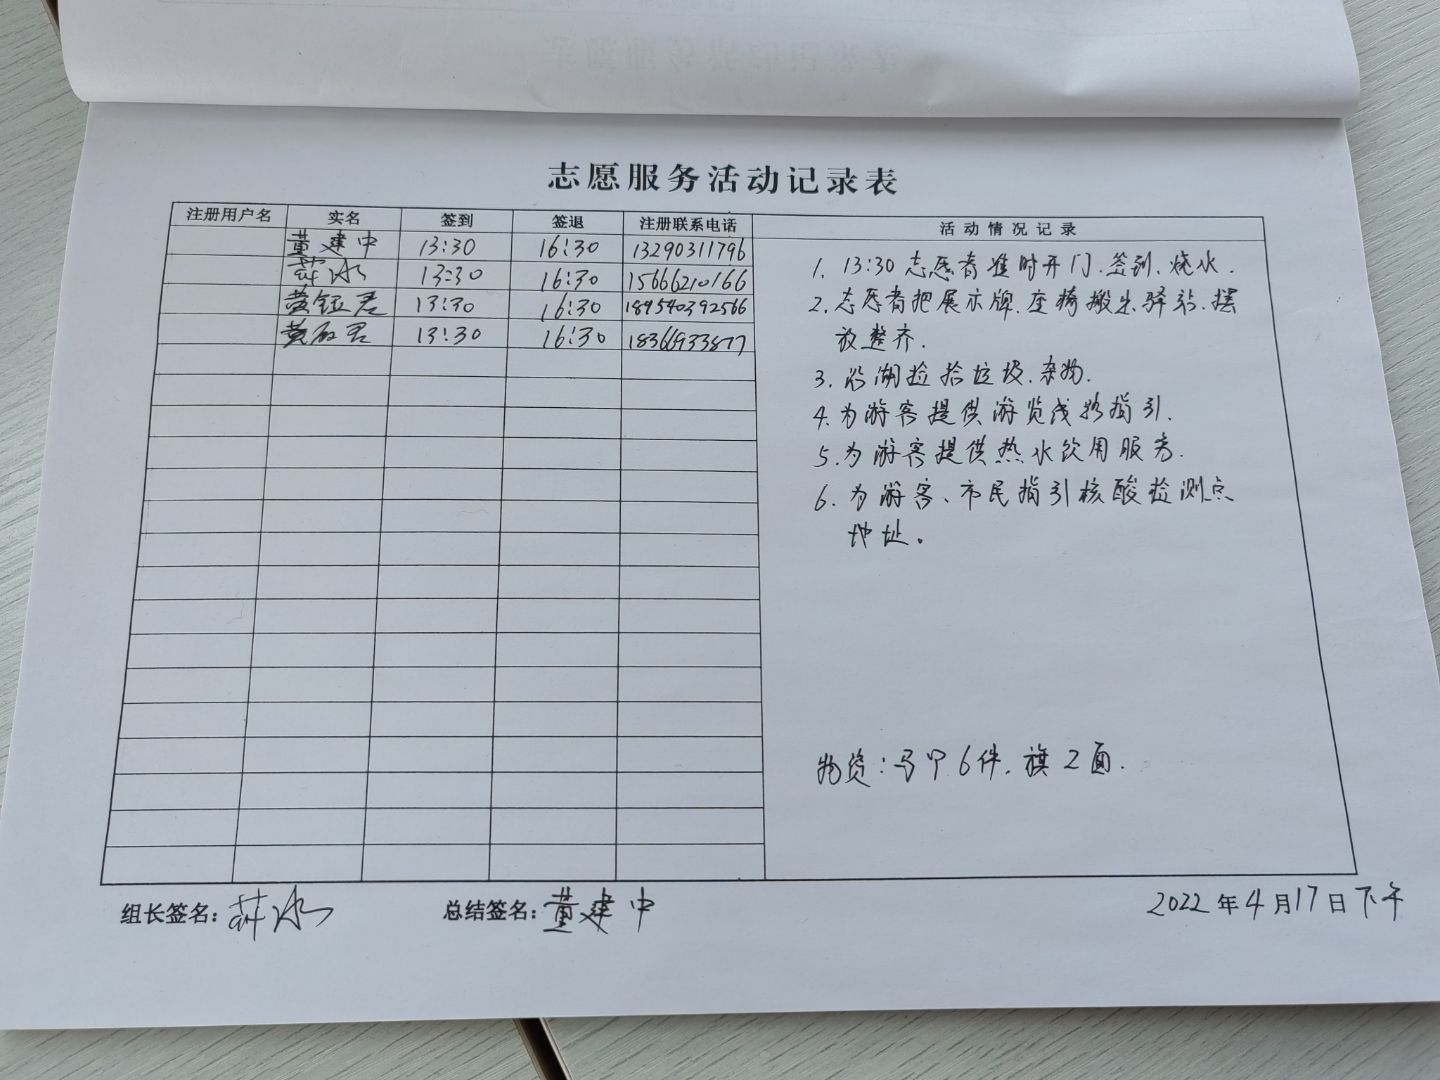 志愿服务活动记录表
注册用户名 实名 签到 签退 注册联系电话 活动情况记录
董建中 13:30 16:30 13290311796
薛冰 13:30 16:30 15666210166
黄钰君 13:30 16:30 189540392566
黄 君 13:30 16:30 18366933877
1. 13:30志愿者准时开门.签到.烧水.
2.志愿者把展示牌.座椅搬出驿站.摆
放整齐.
3.沿湖捡拾垃圾.杂物.
4.为游客提供游览线路指引.
5.为游客提供热水饮用服务.
6.为游客、市民指引核酸检测点
地址。
物资:马甲6件.旗2面.
组长签名:薛冰 总结签名:董建中 2022年4月17日下午